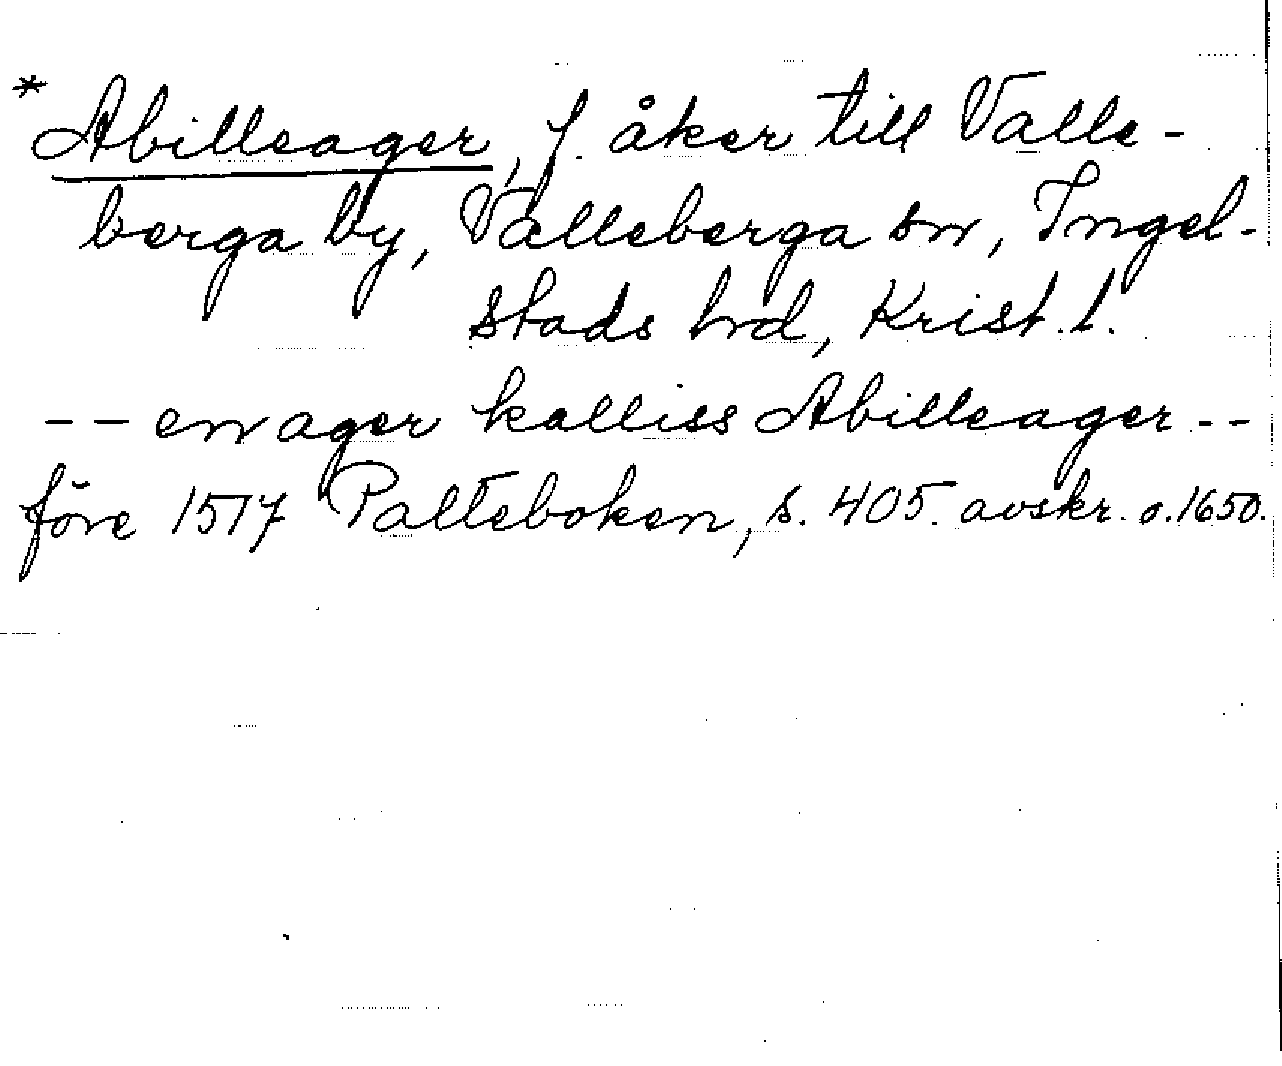 * Abilleager, f. åker till Valle-
berga by, Valleberga sn, Ingel-
stads hd, Krist. l.
-- en ager kalliss Abilleager --
före 1517 Palteboken, s. 405. avskr. o. 1650.